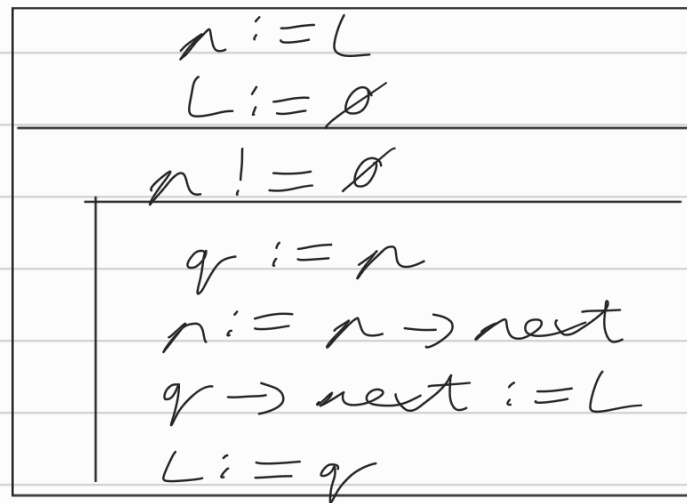 p := L
L := ∅
p != ∅
q := p
p := p → next
q → next := L
L := q